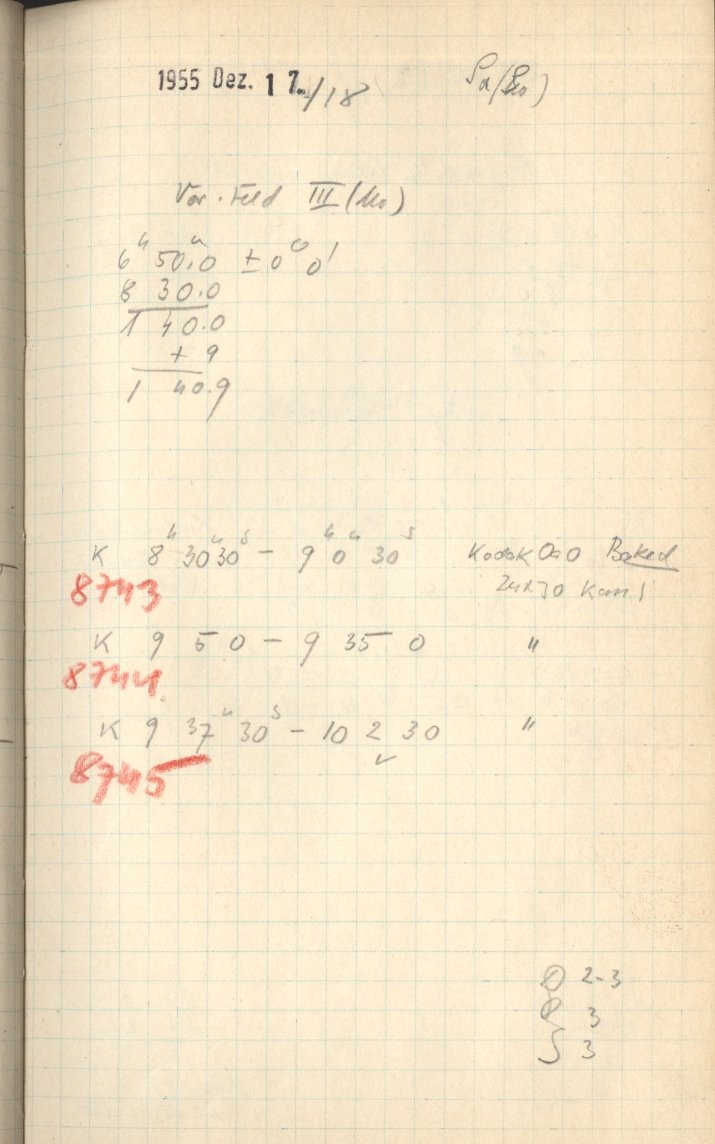 1955 Dez. 17./18
Var. Feld III (Mo)
6ʰ 50ᵐ.0 ± 0° 0'
8 30.0
1 40.0
+ 9
1 40.9
K 8ʰ 30ᵐ 30ˢ – 9ʰ 0ᵐ 30ˢ Kodak OaO Baked
8743 24x30
K 9 5 0 – 9 35 0 "
8744
K 9 37ᵐ 30ˢ – 10 2 30 "
8745
2-3
3
S 3